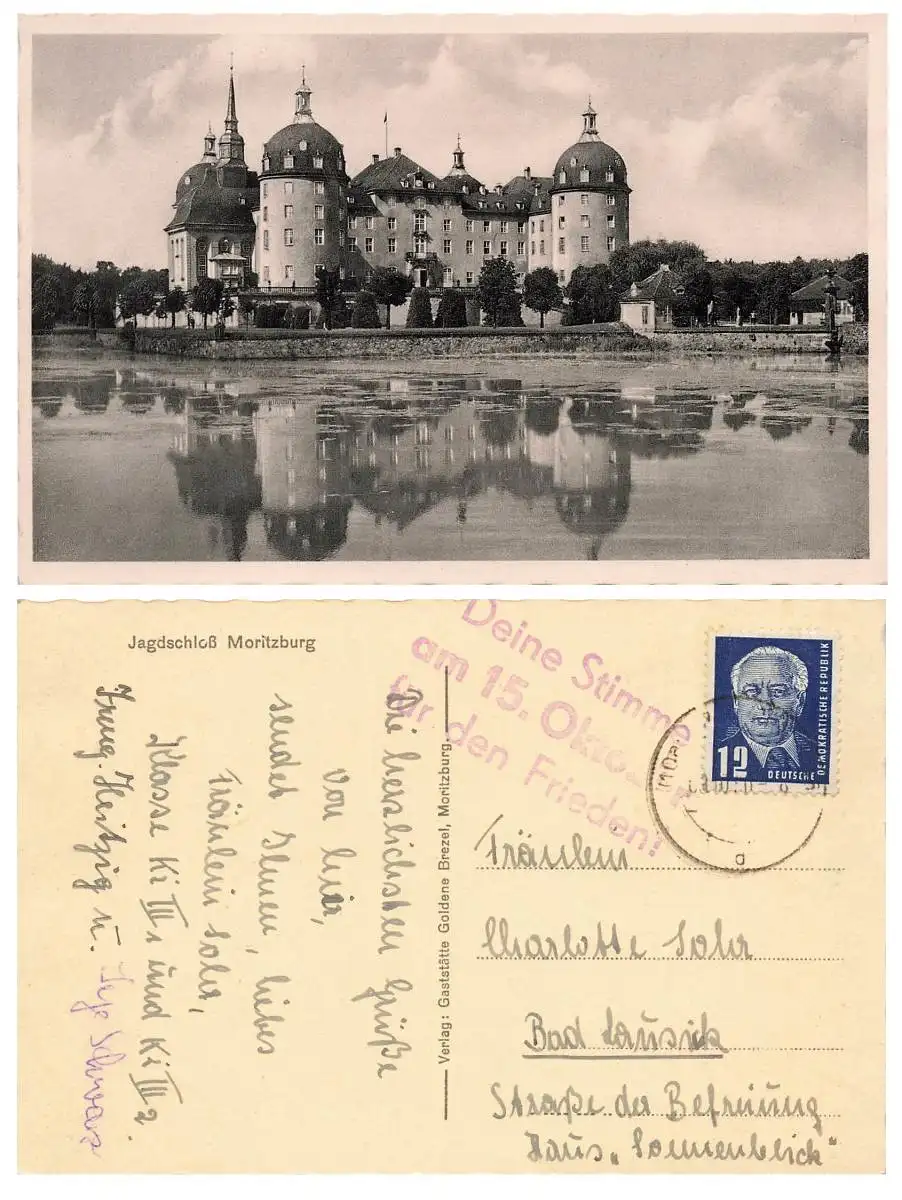 Jagdschloß Moritzburg
Deine Stimme
am 15. Oktober
für den Frieden!
12
DEUTSCHE
DEMOKRATISCHE REPUBLIK
Die herzlichsten Grüße
von hier,
sendet Ihnen, liebes
Fräulein Sohr,
Klasse Ki III1 und Ki III2.
u. Schwarz
Verlag: Gaststätte Goldene Brezel, Moritzburg
Fräulein
Charlotte Sohr
Bad Lausick
Straße der Befreiung
Haus „Sonnenblick"